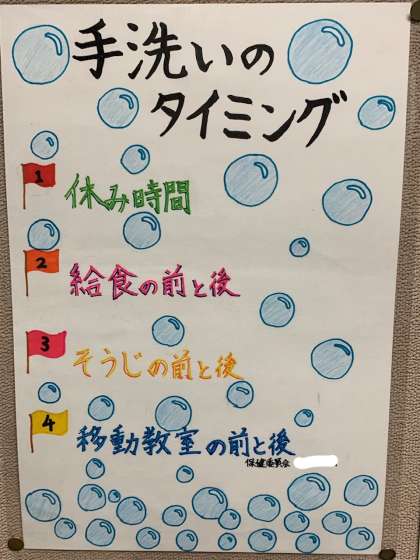 手洗いの
タイミング
1 休み時間
2 給食の前と後
3 そうじの前と後
4 移動教室の前と後
保健委員会